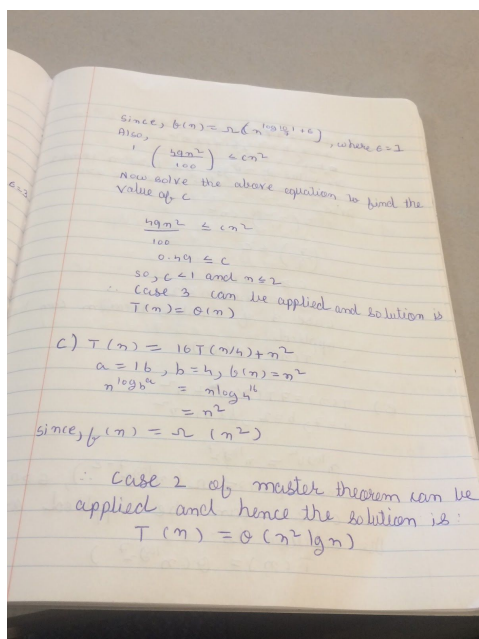 since, f(n) = Ω(n^log_{10/7} 1 + ε), where ε = 1
Also,
(49n²/100) ≤ cn²
Now solve the above equation to find the
value of c
49n²/100 ≤ cn²
0.49 ≤ c
so, c<1 and n≤2
∴ Case 3 can be applied and solution is
T(n) = θ(n)
c) T(n) = 16T(n/4)+n²
a = 16, b = 4, f(n) = n²
n^log_b a = n^log_4 16
= n²
since, f(n) = Ω (n²)
∴ Case 2 of master theorem can be
applied and hence the solution is:
T(n) = θ(n² lg n)